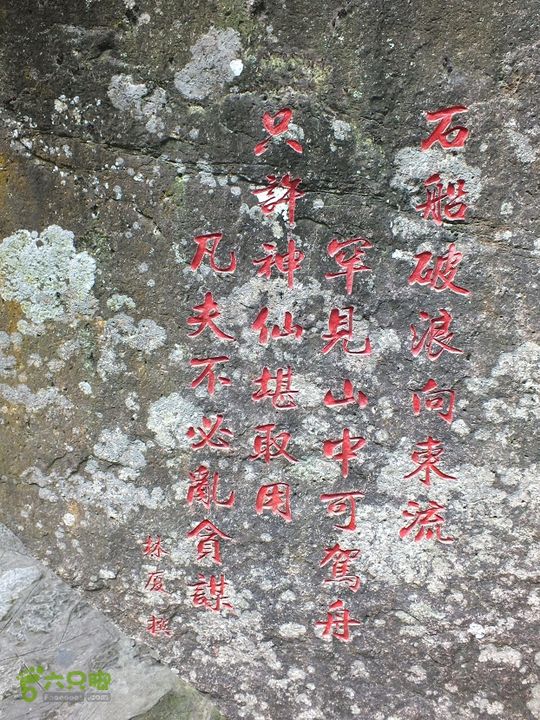 石船破浪向東流
罕見山中可駕舟
只許神仙堪取用
凡夫不必亂貪謀
林厦撰
六只脚
Foooooot.com